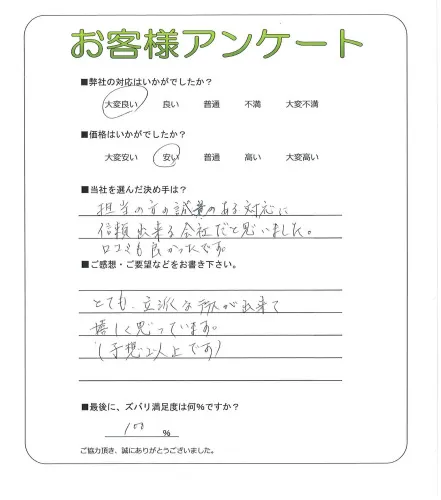 お客様アンケート
■弊社の対応はいかがでしたか？
大変良い 良い 普通 不満 大変不満
■価格はいかがでしたか？
大変安い 安い 普通 高い 大変高い
■当社を選んだ決め手は？
担当の方の誠意のある対応に
信頼出来る会社だと思いました。
口コミも良かったです。
■ご感想・ご要望などをお書き下さい。
とても、立派な が出来て
嬉しく思っています。
(予想以上です)
■最後に、ズバリ満足度は何%ですか？
100 %
ご協力頂き、誠にありがとうございました。